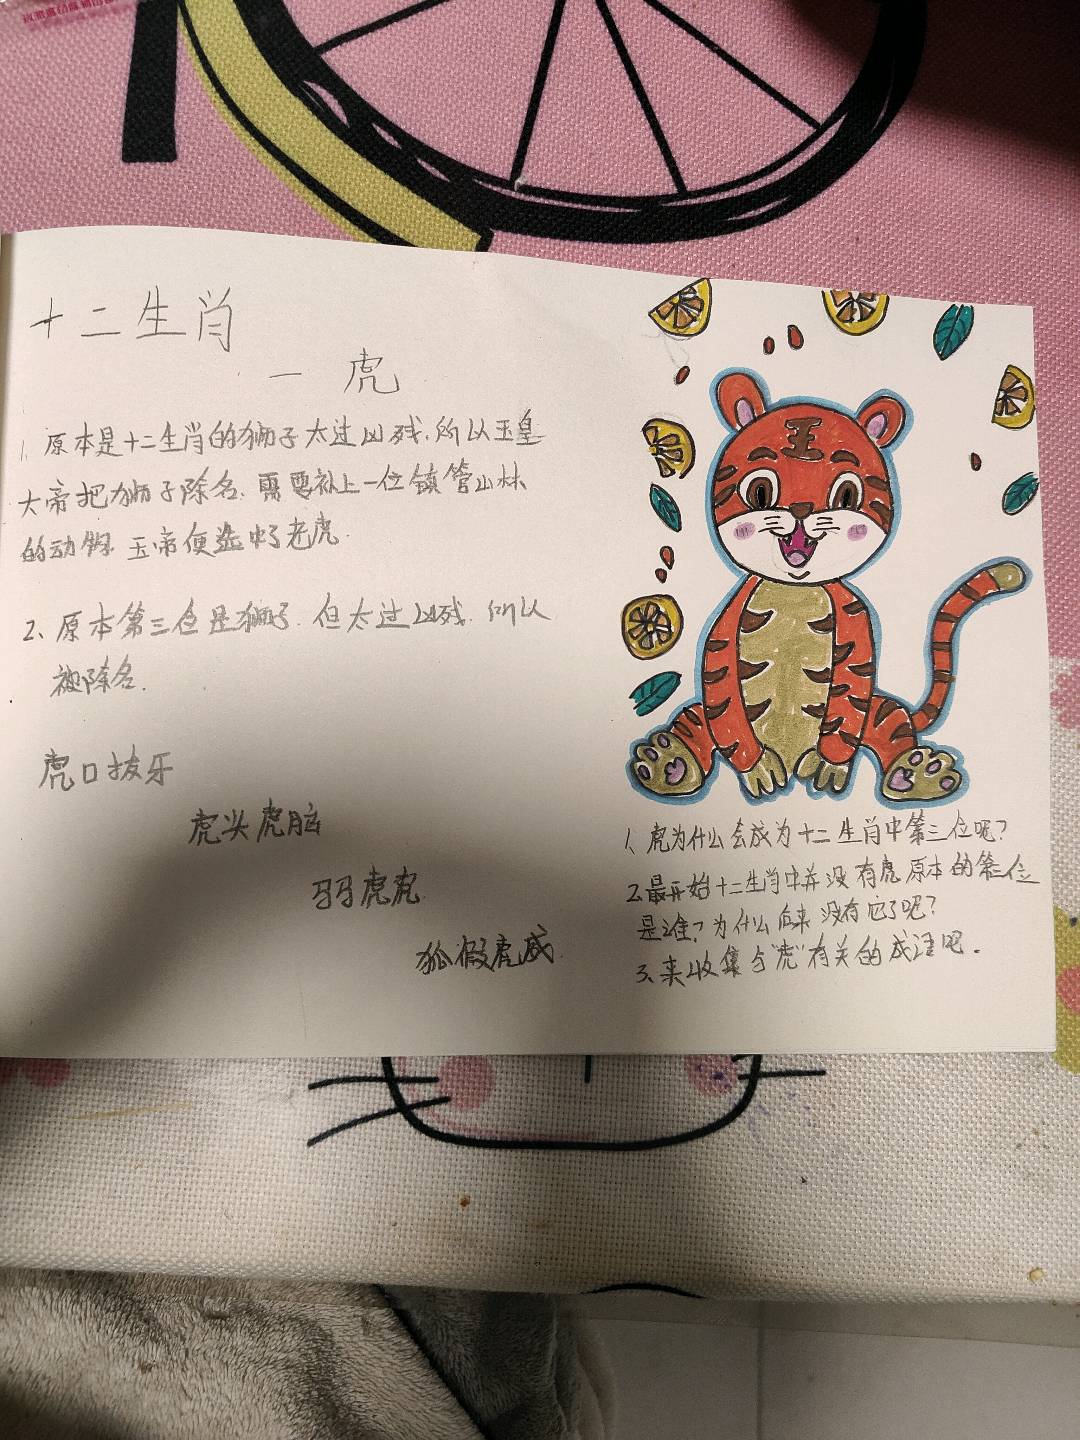 十二生肖
一 虎
1、原本是十二生肖的狮子太过凶残.所以玉皇
大帝把狮子除名.需要补上一位镇管山林
的动物.玉帝便选中了老虎.
2、原本第三位是狮子.但太过凶残.所以
被除名.
虎口拔牙
虎头虎脑
羽羽虎虎
狐假虎威.
王
1、虎为什么会成为十二生肖中第三位呢?
2.最开始十二生肖中并没有虎原本的第三位
是谁?为什么后来没有它了呢?
3、来收集与"虎"有关的成语吧.